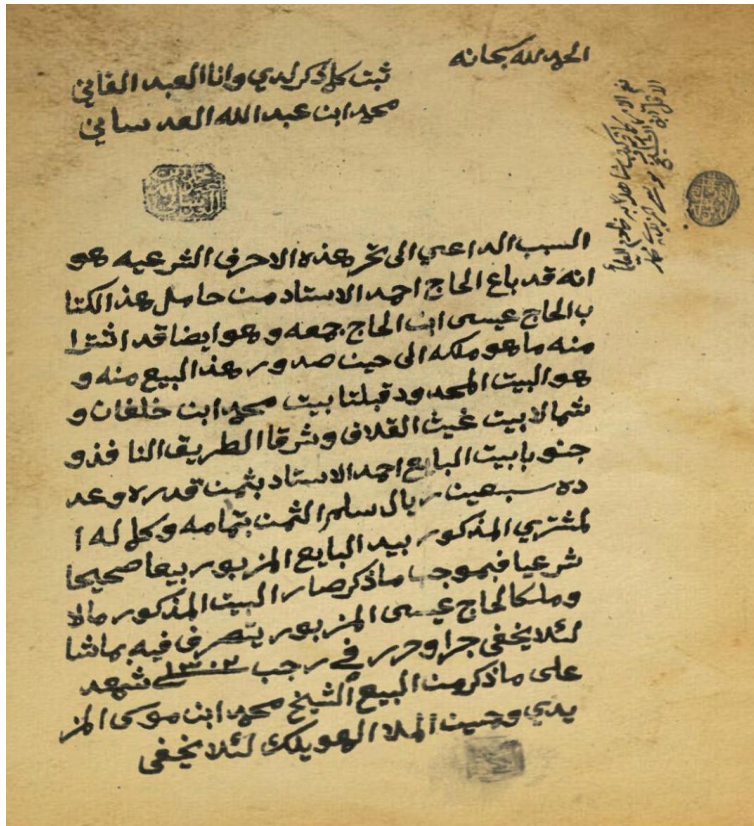 الحمد لله سبحانه
ثبت كلما ذكر لدي وانا العبد الفاني
محمد ابن عبد الله العدساني
السبب الداعي الى تحر هذه الاحرف الشرعيه هو
انه قد باع الحاج احمد الاستاد من حامل هذ الكتا
ب الحاج عيسى ابن الحاج جمعه وهو ايضا قد اشترا
منه ما هو ملكه الى حين صدور هذ البيع منه و
هو البيت المحدود قبلتا بيت محمد ابن خلفان و
شمالا بيت غيث القلاف وشرقا الطريق النافذ و
جنوبا بيت البايع احمد الاستاد بثمن قدره وعد
ده سبعين ريال سلم الثمن بتمامه وكاله ا
لمشتري المذكور بيد البايع المزبور بيعا صحيحا
شرعيا فبموجب ما ذكر صار البيت المذكور مالا
وملكا لحاج عيسى المزبور يتصرف فيه بماشا
لئلا يخفى جرا وحرر في رجب سنة ١٣٠٢ شهد
على ما ذكر من البيع الشيخ محمد ابن موسى المز
يدي وحسين الملا الهويلك لئلا يخفى